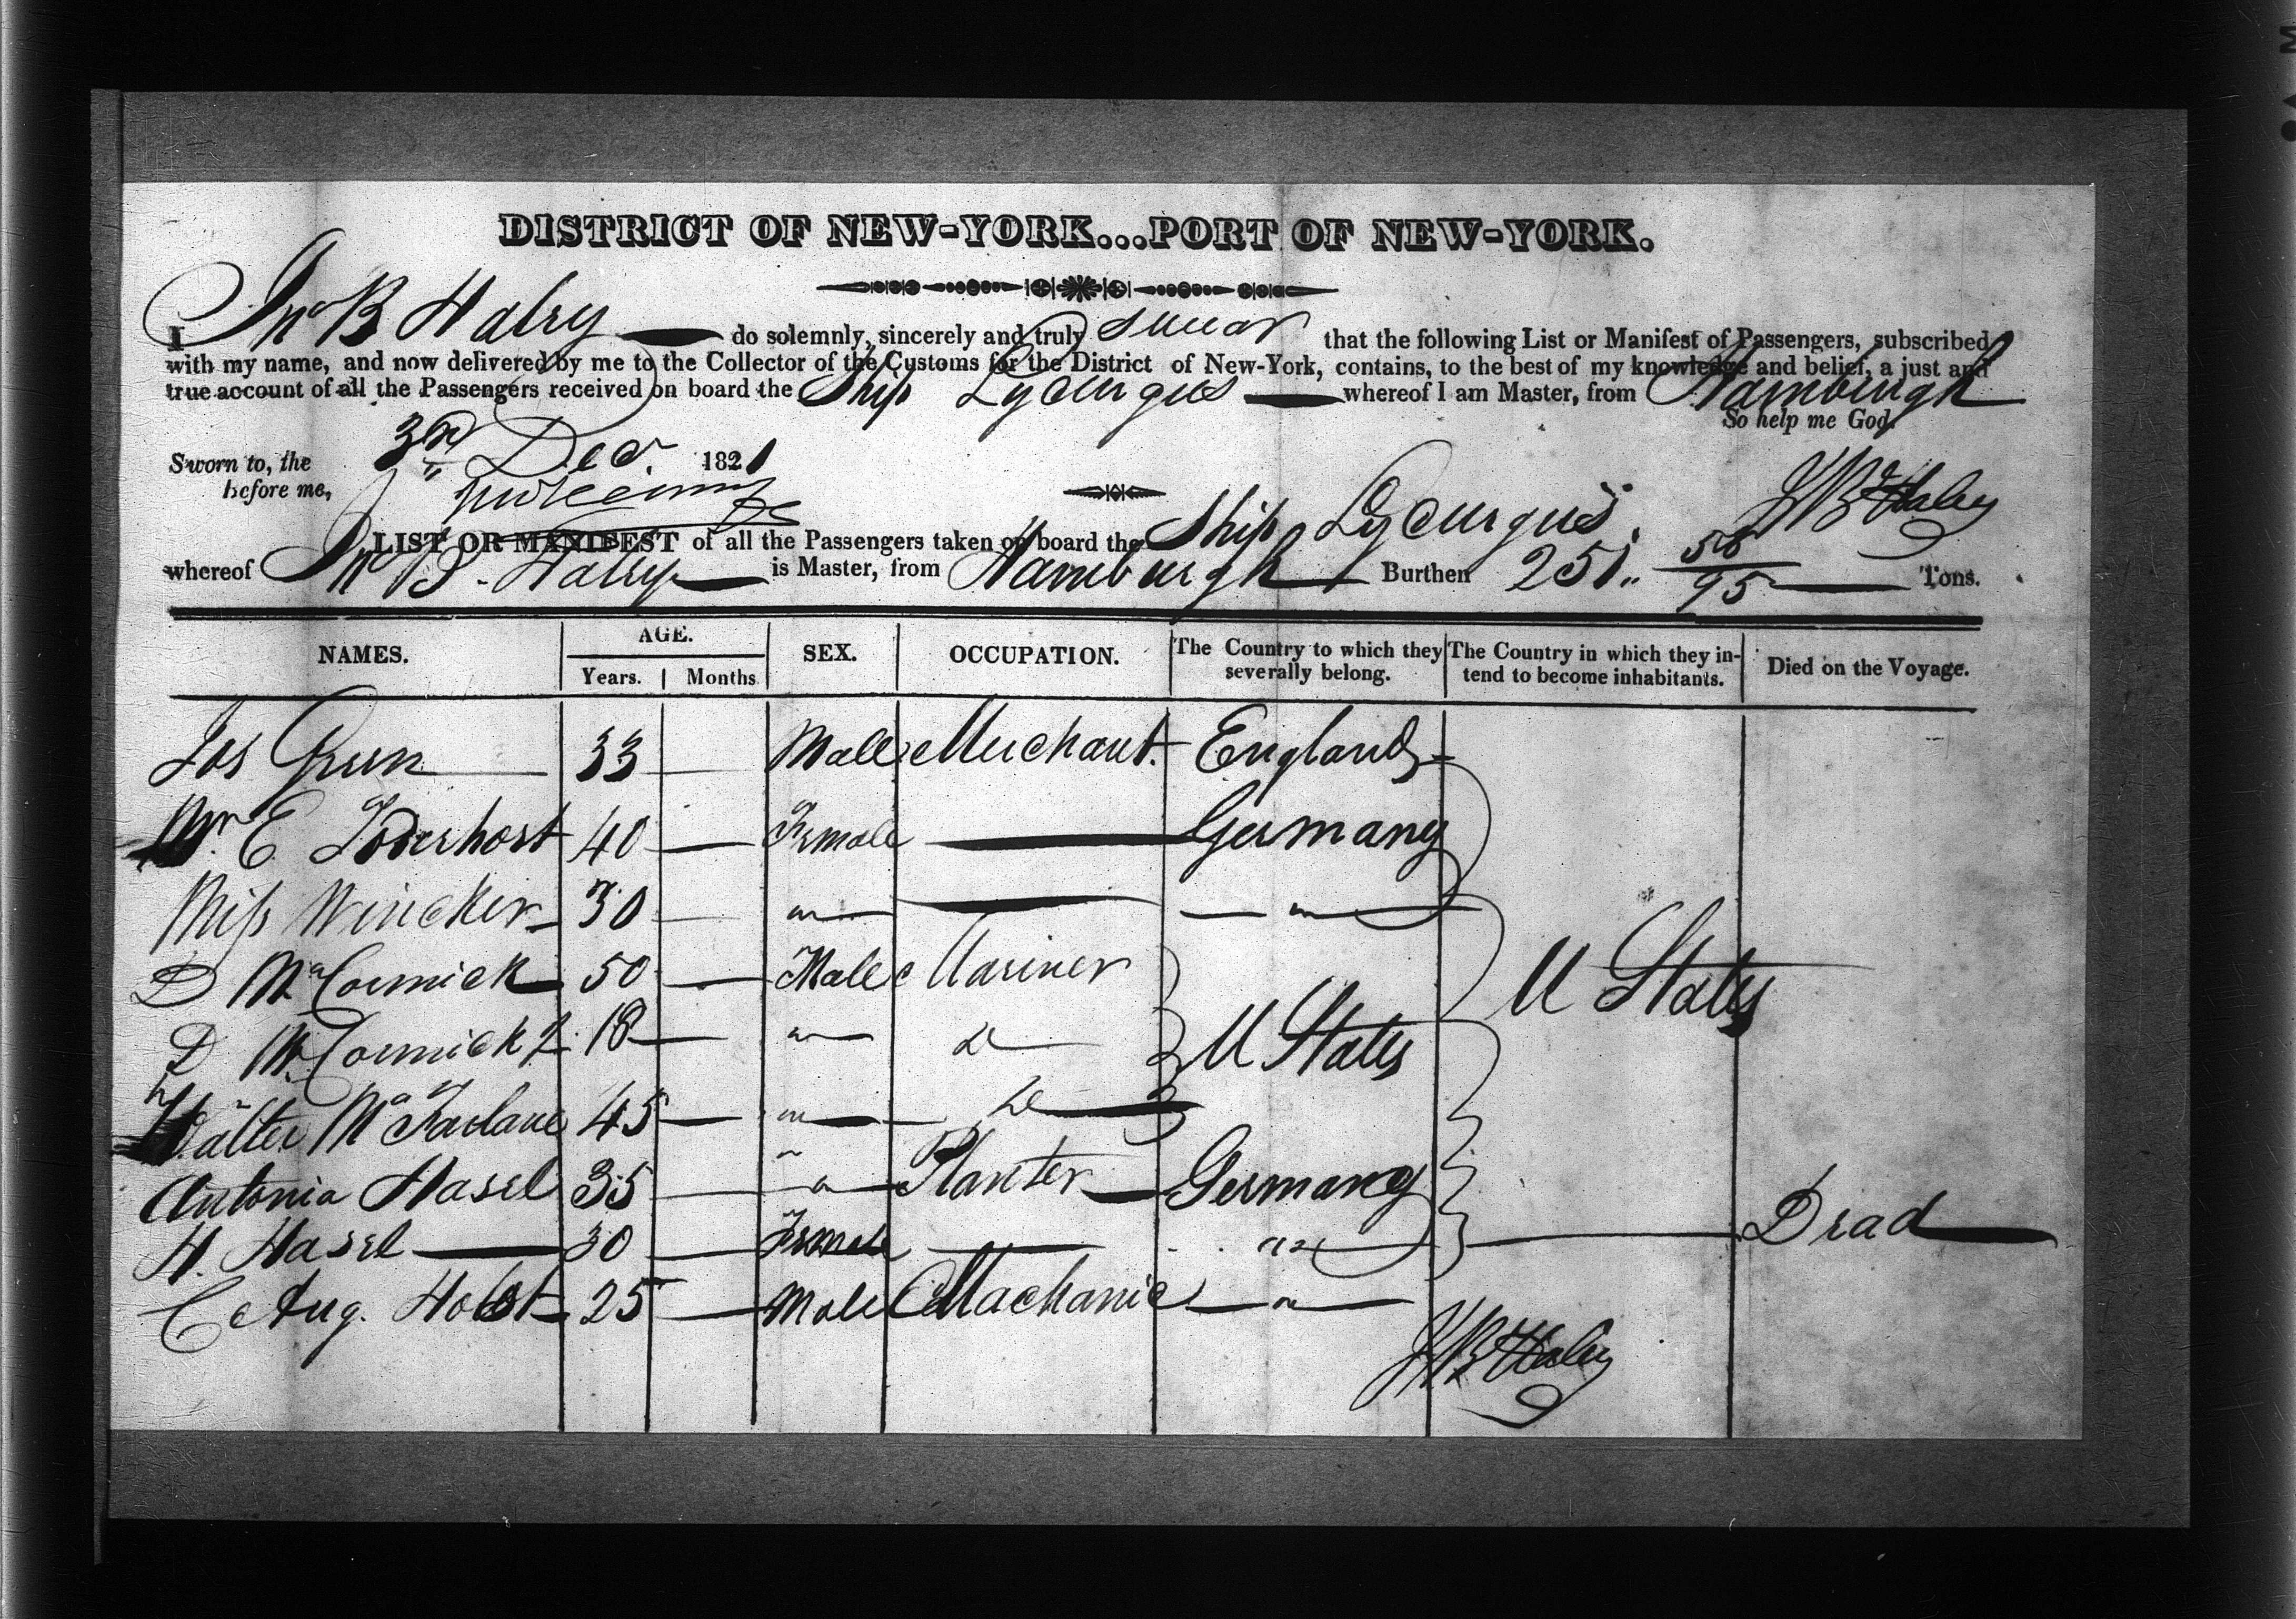 DISTRICT OF NEW-YORK...PORT OF NEW-YORK.
I Jno B Haley do solemnly, sincerely and truly swear that the following List or Manifest of Passengers, subscribed
with my name, and now delivered by me to the Collector of the Customs for the District of New-York, contains, to the best of my knowledge and belief, a just and
true account of all the Passengers received on board the Ship Lycurgus whereof I am Master, from Hamburgh
So help me God.
Sworn to, the 3rd Decr. 1821
before me,
J B Haley
LIST OR MANIFEST of all the Passengers taken on board the Ship Lycurgus
whereof Jno B. Haley is Master, from Hamburgh Burthen 251 56/95 Tons.
NAMES. AGE. Years. Months SEX. OCCUPATION. The Country to which they severally belong. The Country in which they intend to become inhabitants. Died on the Voyage.
Jos Green 33 Male Merchant. England
E 40 Female Germany
Miss Wincker 30 "
D McCormick 50 Male Mariner
D McCormick J. 18 " Do U States U States
Walter McFarlane 45 " Do
Antonia Hasel 35 " Planter Germany
H. Hasel 30 Female " Dead
C Aug. Holst 25 Male Machanic "
J B Haley